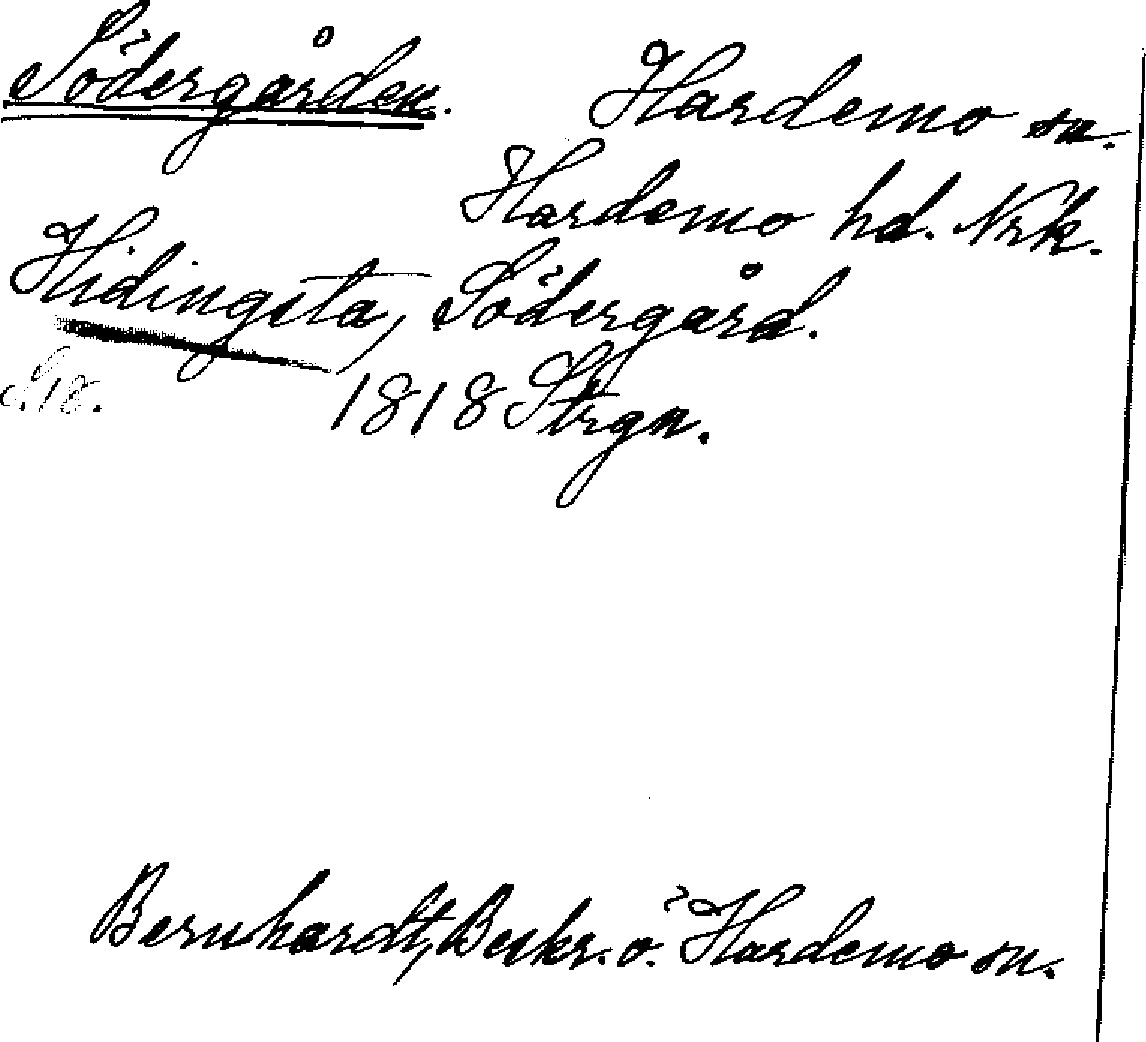 Södergården. Hardemo sn.
Hardemo hd. Nrk.
Hidingsta, Södergård.
S. 18. 1818 Strgn.
Bernhardt, Beskr. ö. Hardemo sn.